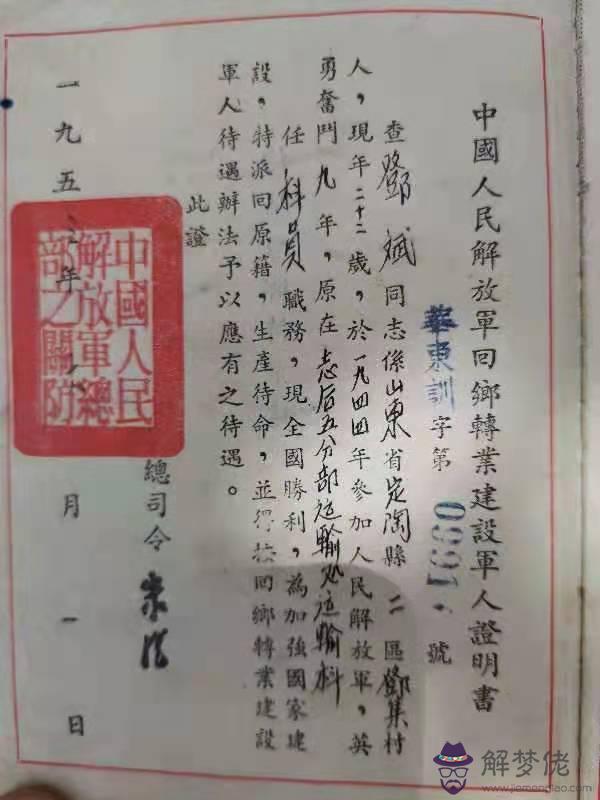 中國人民解放軍回鄉轉業建設軍人證明書
華東訓字第0991號
查鄧斌同志係山東省定陶縣二區鄧集村
人，現年二十二歲，於一九四四年參加人民解放軍，英
勇奮鬥九年，原在志后五分部运輸处运輸科
任科員職務，現全國勝利，為加強國家建
設，特派回原籍，生產待命，並得按回鄉轉業建設
軍人待遇辦法予以應有之待遇。
此證
總司令 朱德
一九五 年 月一日
中國人民
解放軍總
部之關防
解梦佬
www.jiemenglao.com